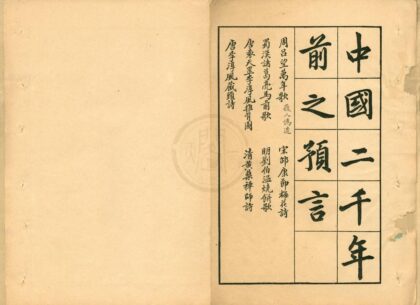 中國二千年
前之預言
周呂望萬年歌 宋邵康節梅花詩
蜀漢諸葛亮馬前 明劉伯溫燒餅歌
唐袁天罡李淳風推背圖 清黃蘗禪師詩
唐李淳風藏頭詩